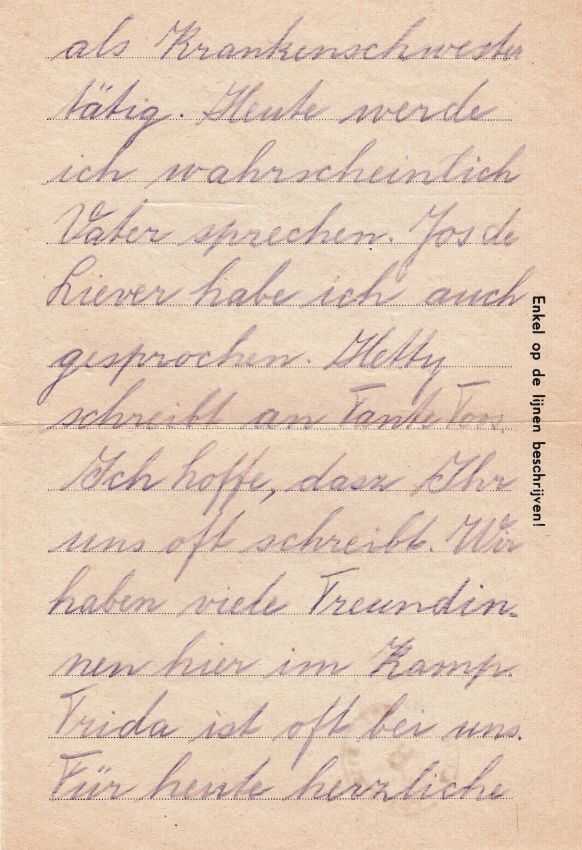 als Krankenschwester
tätig. Heute werde
ich wahrscheinlich
Vater sprechen. Jos de
Liever habe ich auch
gesprochen. Hetty
schreibt an Tante Ton.
Ich hoffe, dasz Ihr
uns oft schreibt. Wir
haben viele Freundin-
nen hier im Kamp.
Frida ist oft bei uns.
Für heute herzliche
Enkel op de lijnen beschrijven!